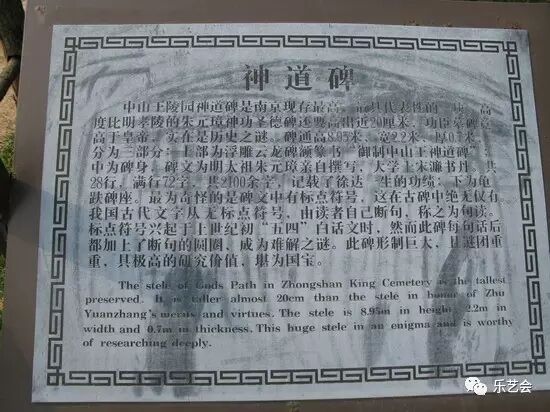 神道碑
中山王陵园神道碑是南京现存最高、最具代表性的一座，高
度比明孝陵的朱元璋神功圣德碑还要高出近20厘米，功臣墓碑竟
高于皇帝，实在是历史之谜。碑通高8.95米、宽2.2米、厚0.7米，
分为三部分：上部为浮雕云龙碑额篆书“御制中山王神道碑”；
中为碑身，碑文为明太祖朱元璋亲自撰写，大学士宋濂书丹，共
28行，满行72字，共2100余字，记载了徐达一生的功绩；下为龟
趺碑座。最为奇怪的是碑文中有标点符号，这在古碑中绝无仅有
我国古代文字从无标点符号，由读者自己断句，称之为句读。
标点符号兴起于上世纪初“五四”白话文时，然而此碑每句话后
都加上了断句的圆圈，成为难解之谜。此碑形制巨大，且谜团重
重，具极高的研究价值，堪为国宝。
The stele of Gods Path in Zhongshan King Cemetery is the tallest
preserved. It is taller almost 20cm than the stele in honor of Zhu
Yuanzhang's merits and virtues. The stele is 8.95m in height, 2.2m in
width and 0.7m in thickness. This huge stele in an enigma and is worthy
of researching deeply.
乐艺会